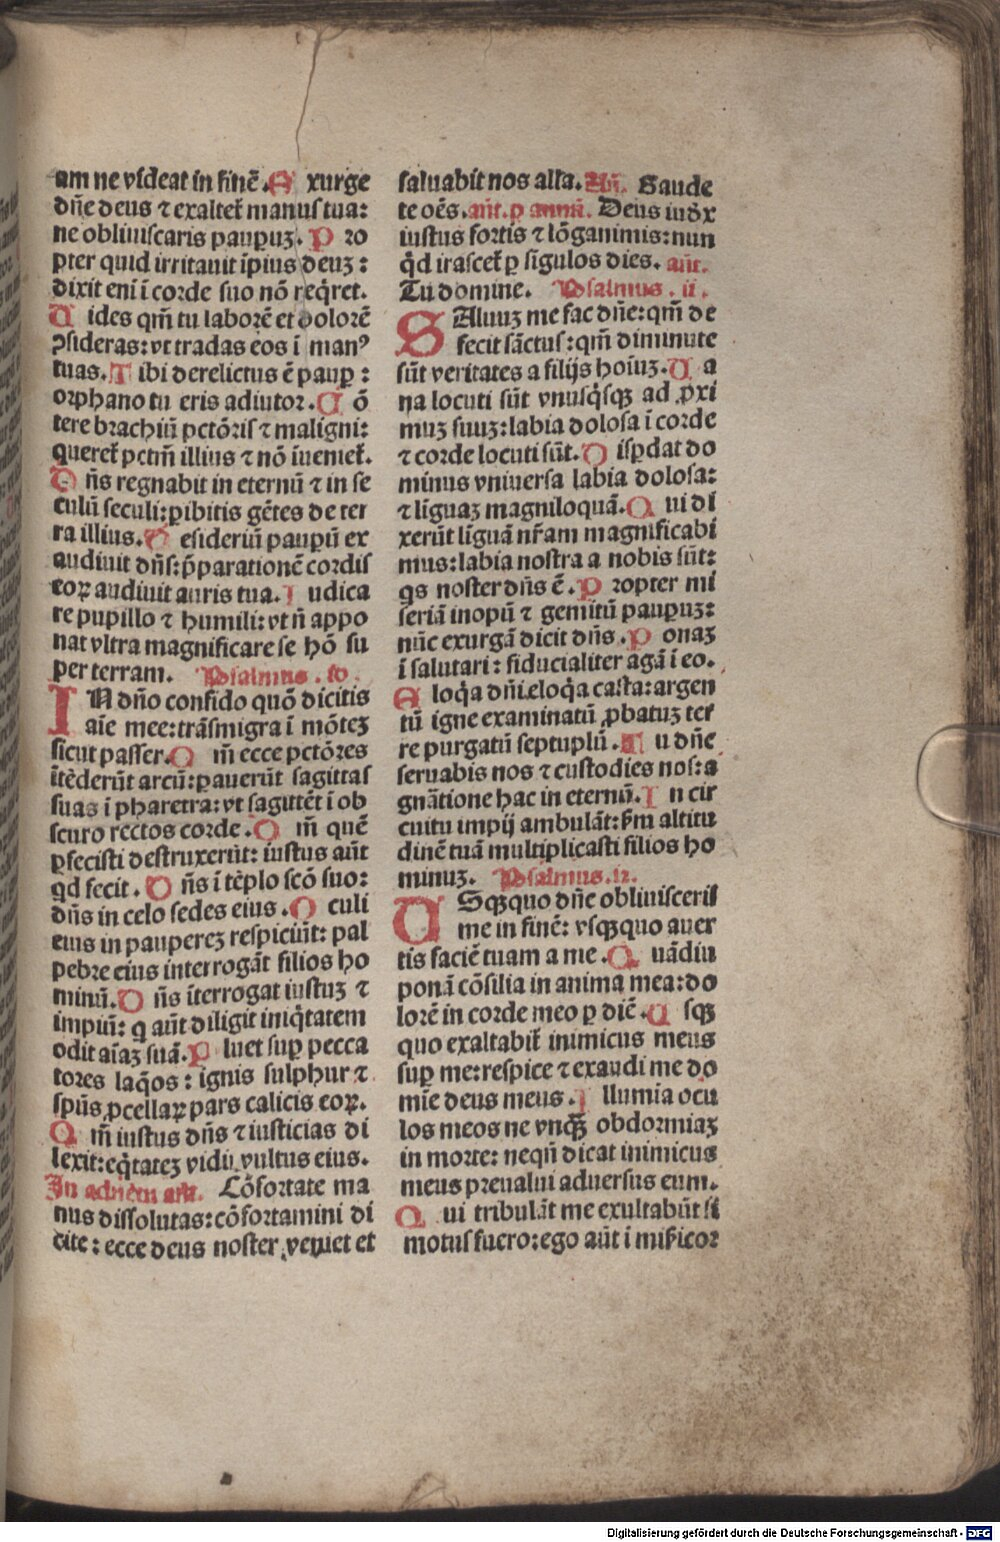 am ne videat in finē. E xurge
dñe deus ⁊ exaltet̄ manus tua:
ne obliuiscaris paupuꝫ. P ro
pter quid irritauit īpius deuꝫ :
dixit eni ī corde suo nō reqͥret.
U ides qm̄ tu laborē et dolorē
ꝯsideras: vt tradas eos ī manꝰ
tuas. T ibi derelictus ē paup̲ :
orphano tu eris adiutor. C ō
tere brachiū pctōris ⁊ maligni:
queret̄ pctm̄ illius ⁊ nō īueniet̄.
D ñs regnabit in eternū ⁊ in se
culū seculi: ꝑibitis gētes de ter
ra illius. D esideriū paupū ex
audiuit dñs: p̄parationē cordis
eoꝝ audiuit auris tua. I udica
re pupillo ⁊ humili: vt ñ appo
nat vltra magnificare se hō su
per terram. Psalmus . ꝟ.
IN dño confido quō dicitis
aīe mee: trāsmigra ī mōteꝫ
sicut passer. Q m̄ ecce pctōres
ītēderūt arcū: ꝑauerūt sagittas
suas ī pharetra: vt sagittēt ī ob
scuro rectos corde. Q m̄ quē
ꝑfecisti destruxerūt: iustus aūt
qd fecit. D ñs ī tēplo scō suo:
dñs in celo sedes eius. O culi
eius in paupereꝫ respiciūt: pal
pebre eius interrogāt filios ho
minū. D ñs īterrogat iustuꝫ ⁊
impiū: q aūt diligit iniqͥtatem
odit aīaꝫ suā. P luet suꝑ pecca
tores laqͦos : ignis sulphur ⁊
spūs ꝓcellaꝝ pars calicis eoꝝ.
Q m̄ iustus dñs ⁊ iusticias di
lexit: eqͥtateꝫ vidit vultus eius.
In aduētu añ. Cōfortate ma
nus dissolutas: cōfortamini di
cite : ecce deus noster veniet et
saluabit nos alla. Añ. Gaude
te oēs. añt. ꝑ annū. Deus iudx
iustus fortis ⁊ lōganimis: nun
qͥd irascet̄ ꝑ sīgulos dies. añt.
Tu domine. Psalmus . ii .
SAluuꝫ me fac dñe: qm̄ de
fecit sāctus: qm̄ diminute
sūt veritates a filijs hoīuꝫ. U a
na locuti sūt vnusqͥsqꝫ ad ꝓxi
muꝫ suuꝫ: labia dolosa ī corde
⁊ corde locuti sūt. D isꝑdat do
minus vniuersa labia dolosa:
⁊ līguaꝫ magniloquā. Q ui di
xerūt līguā nr̄am magnificabi
mus: labia nostra a nobis sūt:
qͥs noster dñs ē. P ropter mi
seriā inopū ⁊ gemitū paupuꝫ:
nūc exurgā dicit dñs. P onaꝫ
ī salutari : fiducialiter agā ī eo.
E loqͥa dñi eloqͥa casta: argen
tū igne examinatū ꝓbatuꝫ ter
re purgatū septuplū. T u dñe
seruabis nos ⁊ custodies nos: a
gnātione hac in eternū. I n cir
cuitu impij ambulāt: s̄m altitu
dinē tuā multiplicasti filios ho
minuꝫ. Psalmus. 12.
USqꝫquo dñe obliuisceris
me in finē: vsqꝫquo auer
tis faciē tuam a me. Q uādiu
ponā cōsilia in anima mea: do
lorē in corde meo ꝑ diē. U sqꝫ
quo exaltabit̄ inimicus meus
suꝑ me: respice ⁊ exaudi me do
mīe deus meus. I llumia ocu
los meos ne vnqꝫ obdormiaꝫ
in morte: neqn̄ dicat inimicus
meus preualui aduersus eum.
Q ui tribulāt me exultabūt si
motus fuero: ego aūt ī mis̄icor
Digitalisierung gefördert durch die Deutsche Forschungsgemeinschaft - DFG